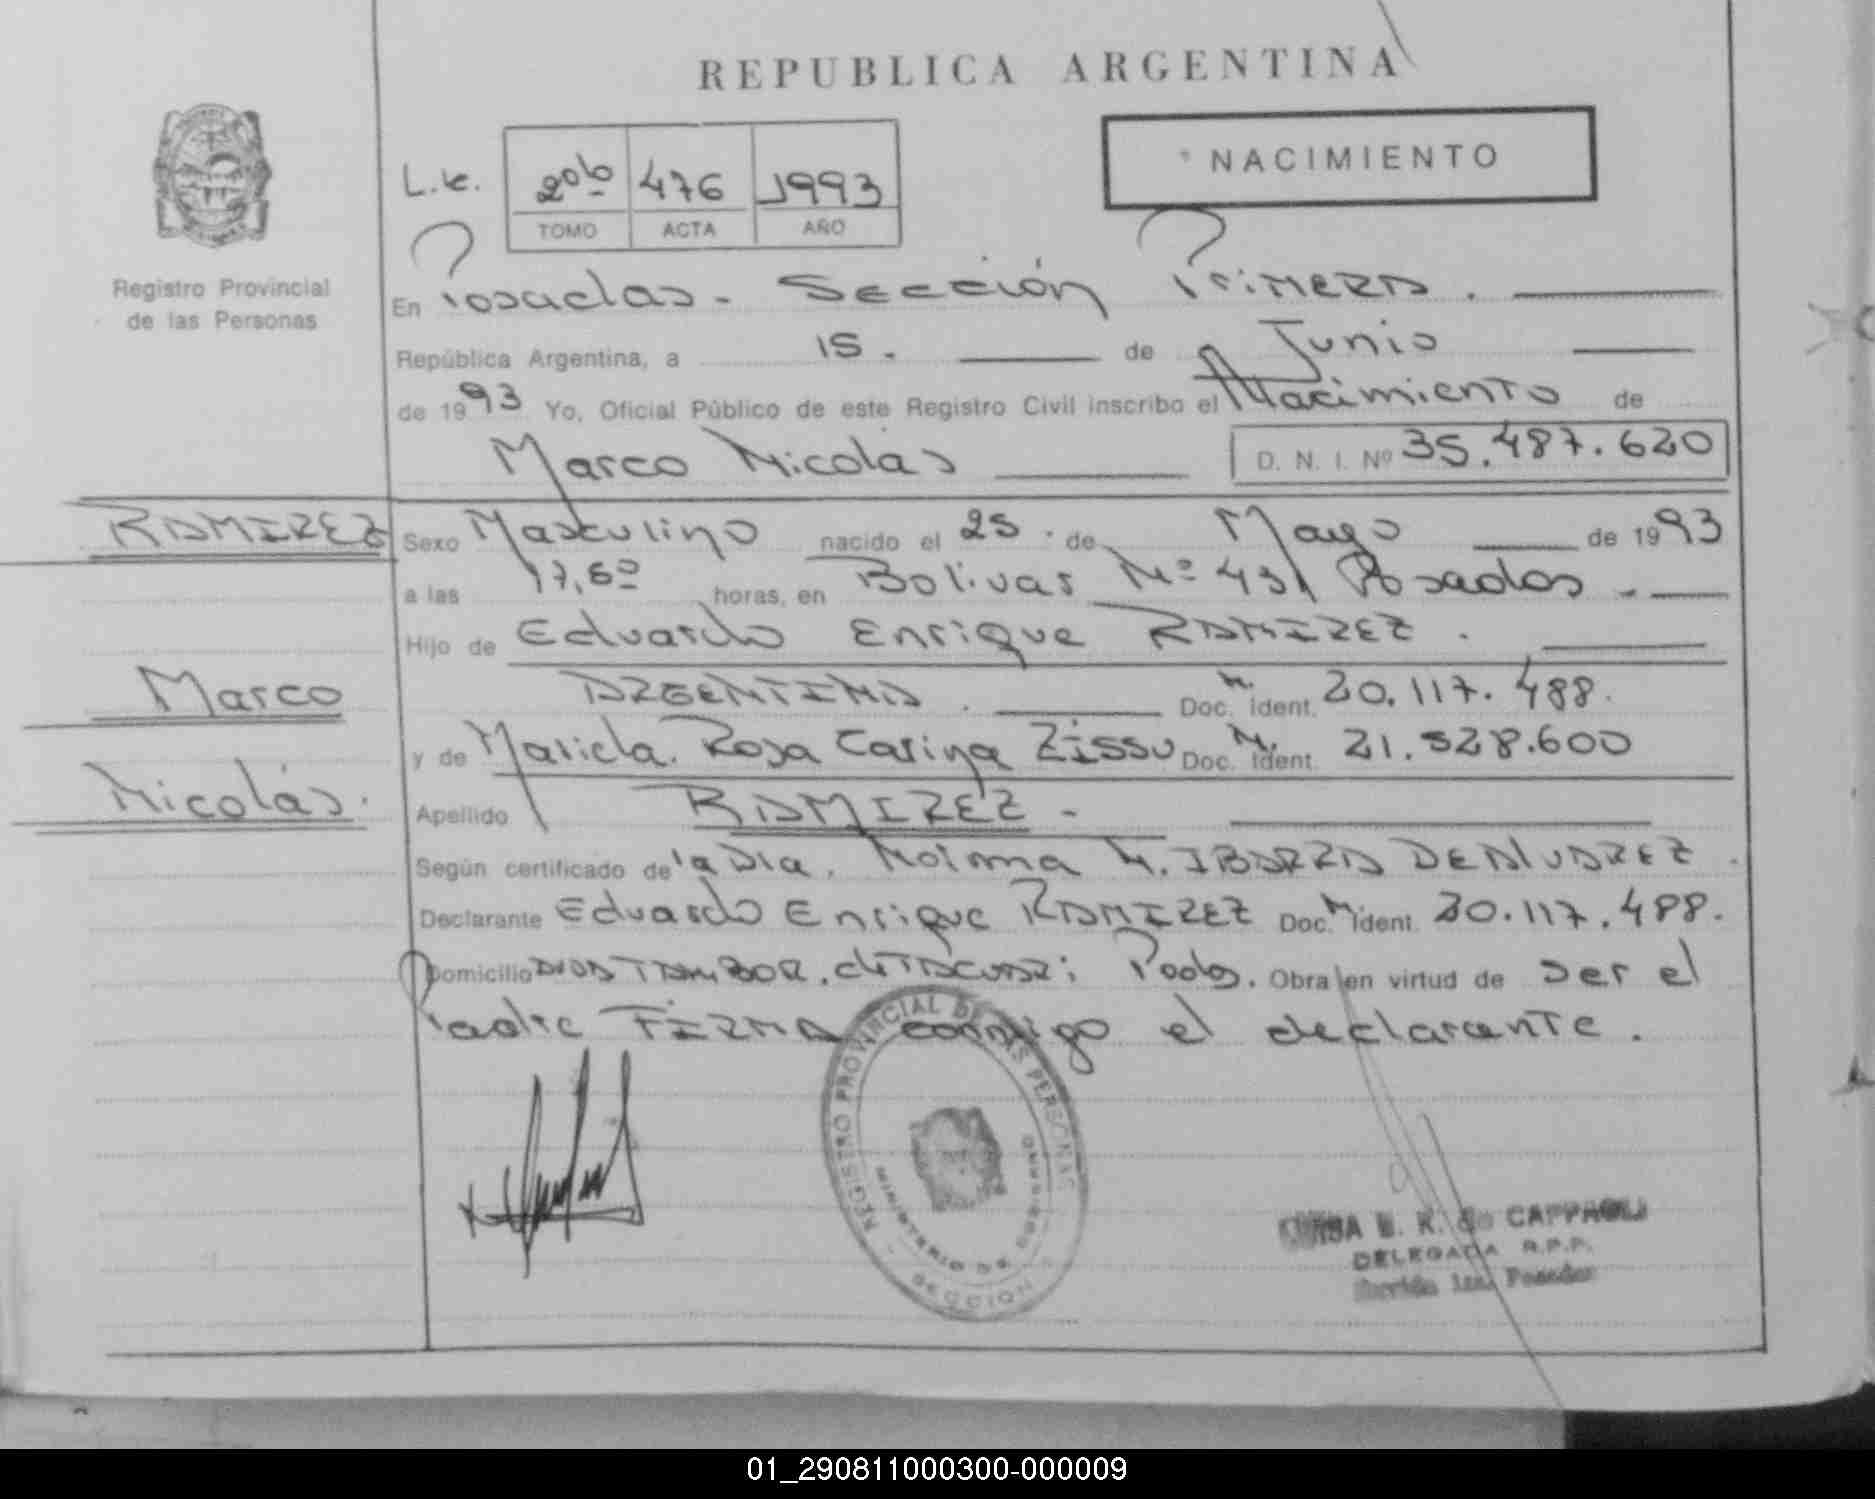 REPUBLICA ARGENTINA
NACIMIENTO
476 1993
TOMO ACTA AÑO
Registro Provincial
de las Personas
En Posadas - Sección Primera.
República Argentina, a 15. de Junio
de 1993 Yo, Oficial Público de este Registro Civil inscribo el Nacimiento de
Marco Nicolás D. N. I. Nº 35.487.620
RAMIREZ
Sexo Masculino nacido el 25. de Mayo de 1993
a las horas, en Bolivar Nº 431 Posadas.-
Hijo de Eduardo Enrique RAMIREZ.
Marco
ARGENTINA. Doc. Ident. 20.117.488.
y de Rosa Carina Zissu Doc. Ident. 21.528.600
Nicolás.
Apellido RAMIREZ -
Según certificado de la Dra. M. IBARRA DE
Declarante Eduardo Enrique RAMIREZ Doc. Ident. 20.117.488.
Domicilio Pdas. Obra en virtud de ser el
Padre FIRMA conmigo el declarante.
REGISTRO PROVINCIAL DE LAS PERSONAS
MINISTERIO DE GOBIERNO
SECCION
de CAPPAGLI
DELEGADA R.P.P.
Sección 1ra. Posadas
01_290811000300-000009